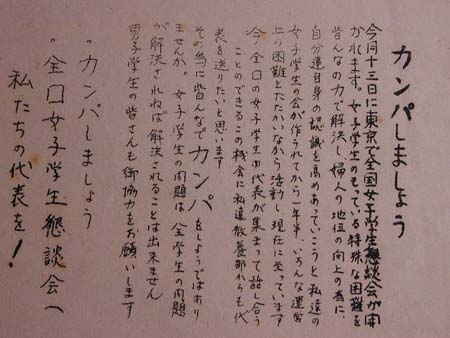 カンパしましょう
今月十三日に東京で全国女子学生懇談会が開
かれます。女子学生のもっている特殊な困難を
皆んなの力で解決し、婦人の地位の向上の為に、
自分達自身の認識を高めあっていこうと私達の
女子学生の会が作られてから一年半、いろんな運営
上の困難とたたかいながら活動し現在に至っています
今全口の女子学生の代表が集まって話し合う
ことのできるこの機会に私達教養部からも代
表を送りたいと思います
その為に皆んなでカンパをしようではあり
ませんか。女子学生の問題は、全学生の問題
が解決されねば解決されることは出来ません
男子学生の皆さんも御協力をお願いします
〃カンパしましょう
〃全口女子学生懇談会へ
私たちの代表を!